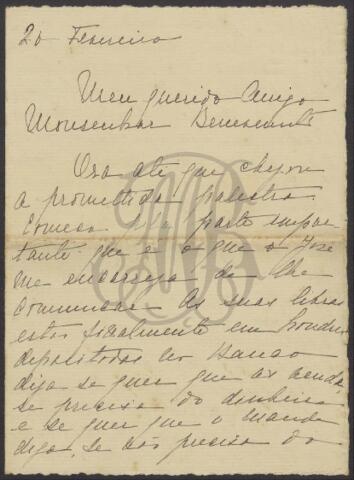 20 Fevereiro
Meu querido Amigo
Monsenhor Benevenuto
Ora até que chegou
a promettida palestra
Começo pela parte impor-
tante que é o que o José
me encarrega de lhe
communicar As suas libras
estão finalmente em Londres
depositadas no Banco
diga se quer que as venda
se precisa do dinheiro
e se quer que o mande
diga, se não precisa do